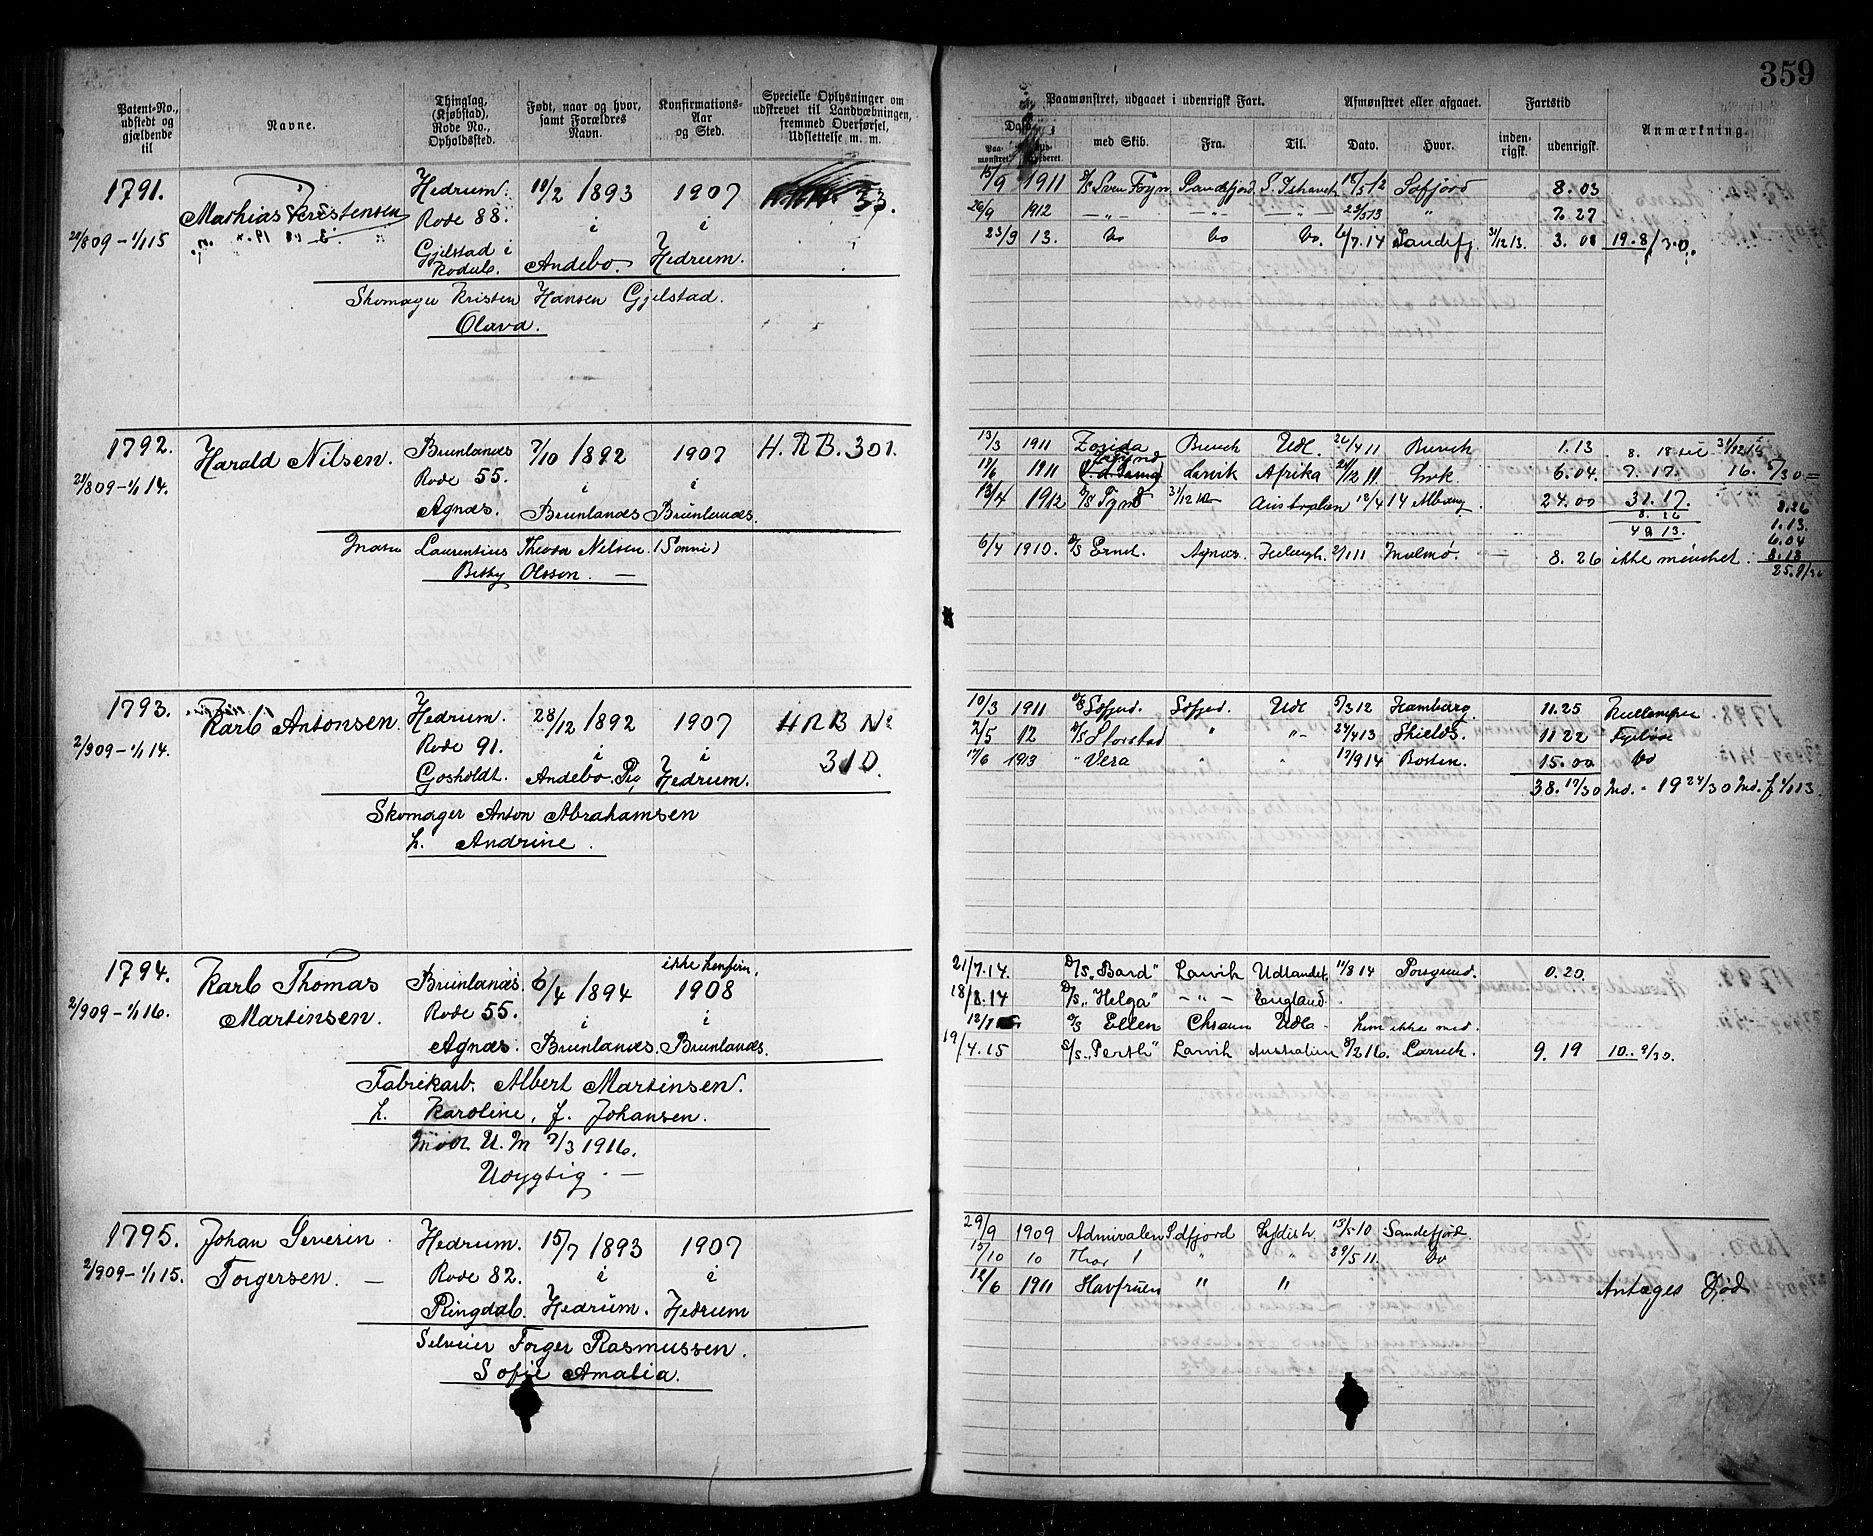 359
Patent-No., udstedt og gjældende til
Navne.
Thinglag, (Kjøbstad), Rode No., Opholdssted.
Født, naar og hvor, samt Forældres Navn.
Konfirmations- Aar og Sted.
Specielle Oplysninger om udskrevet til Landværbningen, fremmed Overførsel, Udslettelse m. m.
Paamønstret, udgaaet i udenrigsk Fart.
Afmønstret eller afgaaet.
Fartstid
Anmærkning.
Dato
Paa- mønstret
med Skib.
Fra.
Til.
Dato.
Hvor.
inden- rigsk.
udenrigsk.
1791. Hedrum. 10/2 1893 1907 33.
Mathias Kristensen Rode 88. i i
20/809 – 1/1 15 Gjelstad i Kodal. Andebo. Hedrum.
Skomager Kristen Hansen Gjelstad.
Olava.
15/9 1911 D/S Sven Foyn Sandefjord 15/5 12 Sdfjord 8.03
26/9 1912 –„– –„– –„– 23/5 13 " 7.27
23/9 13. do do do. 6/7.14 Sandefj. 31/12 13. 3.08 19.8/30.
1792. Harald Nilsen. Brunlanæs 7/10 1892 1907 H.R.B. 301.
21/809 – 1/1 14. Rode 55. i i
Agnæs. Brunlanæs Brunlanæs.
Laurentius Theodor Nilsen. (Sønni)
Betsy Olsson. —
13/3 1911 Zorida Brevik Udl 26/4 11 Brevik 1.13
1911 Larvik Afrika Lvk. 6.04 7.17. 16. 5/30 =
13/4 1912 Australien 12/4 14 24.00 31.17.
8.26
49 13.
8.26
1.13.
6.04
6/4 1910. D/S Ernst. Agnæs. 2/1 11 Malmø. — 8.26 ikke mønstret.
1793. Karl Antonsen Hedrum. 28/12 1892 1907 H R B No
2/909 – 1/1 14. Rode 91. i i 310.
Gosholdt. Andebo. Pg. Hedrum.
Skomager Anton Abrahamsen
h. Andrine.
10/3 1911 Sdfjord. Udl 5/3 12 Hamburg. 11.25
2/5 12 D/S Storstad " "– 24/4 13 Shields. 11 22
17/6 1913 " Vera " " 17/9 14 Boston. 15.00 do
38. 17/30 Md. - 19 24/30 Md. f 1/1 13.
1794. Karl Thomas Brunlanæs 6/4 1894 ikke konfirm. 1908
2/909 – 1/1 16. Martinsen. Rode 55. i i
Agnæs. Brunlanæs. Brunlanæs.
Fabrikarb. Albert Martinsen.
h. Karoline, f. Johansen.
Mødt U.M 7/3 1916.
Udygtig. —
21/7.14. D/S „Bard" Larvik Udlandet. 11/8 14 Porsgrund. 0.20.
18/8.14 D/S „Helga" –„– England.
D/S Ellen Chrania Udl- kom ikke med.
19/4.15 S/S „Perth" Larvik Australien 8/2 16. Larvik. 9.19 10. 9/30.
1795. Johan Severin Hedrum. 15/7 1893 1907
2/909 – 1/1 15. Torgersen. — Rode 82. i i
Ringdal. Hedrum. Hedrum
Selveier Torger Rasmussen.
Sofie Amalia.
29/9 1909 Admiralen Sdfjord Sydish 15/5 10 Sandefjord.
15/10 10 Thor I " " 29/5 11. do
12/6 1911 Havfruen " " Antages Død